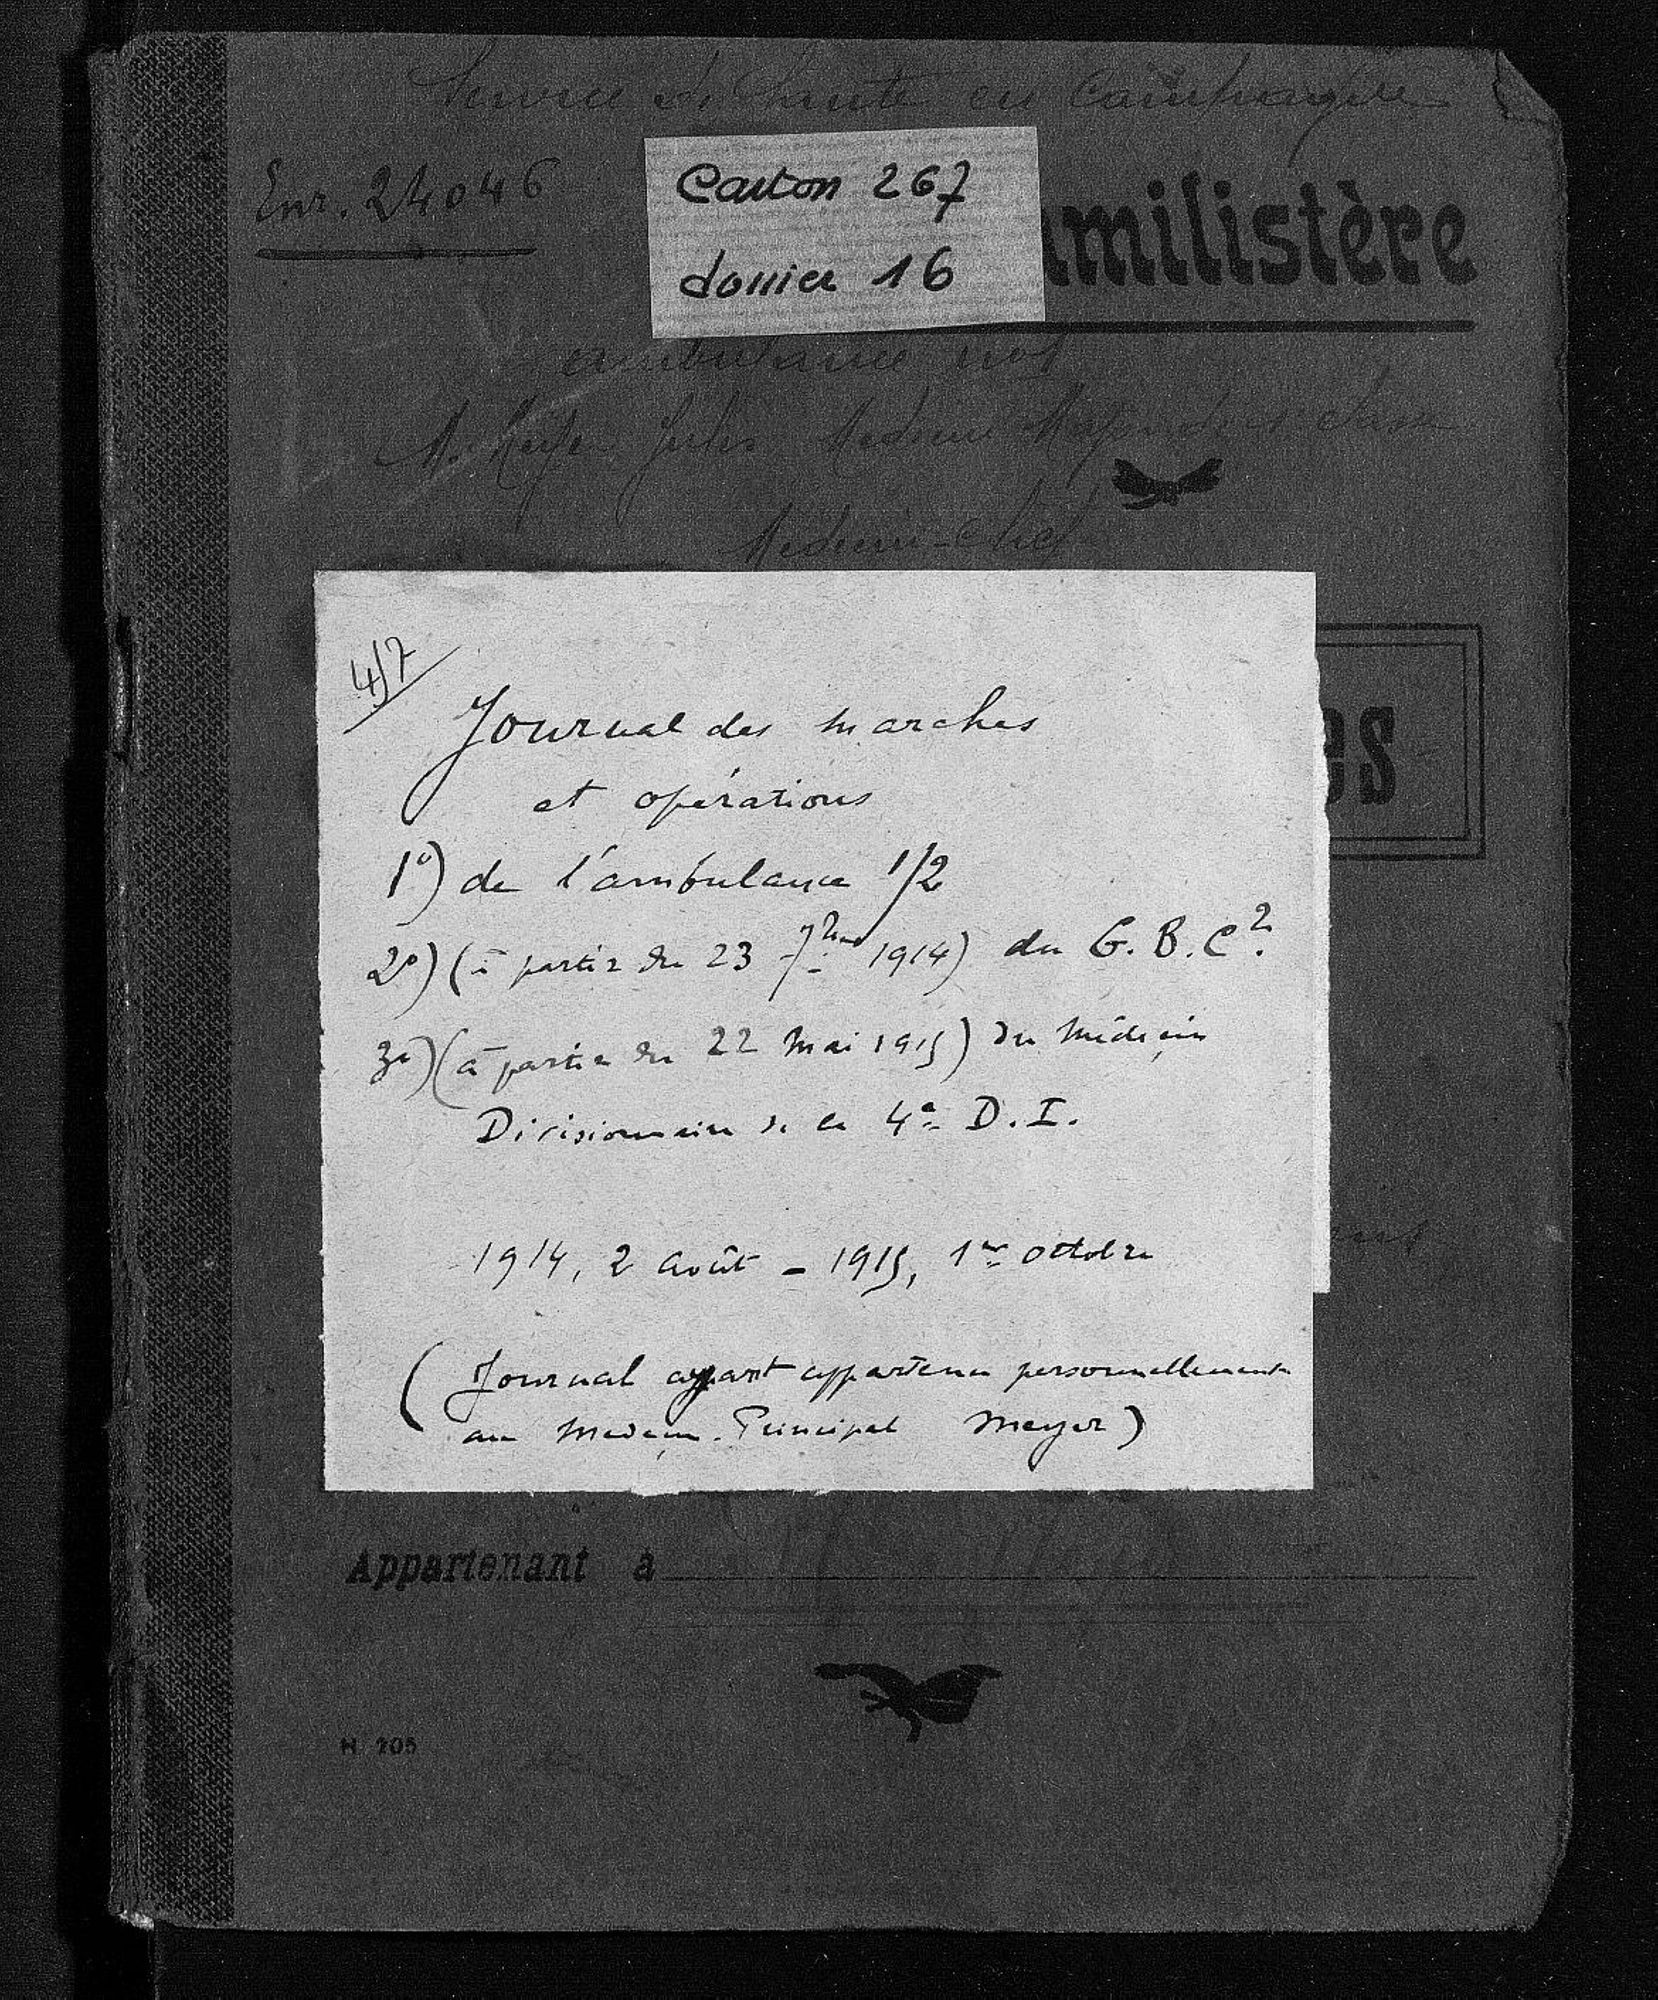 Service de Santé en Campagne
Enr. 24046
Carton 267
dossier 16
amilistère
ambulance no 1
M. Meyer Jules Médecin Major de 1e classe
Médecin-chef
4/7
Journal des marches
et opérations
1°) de l'ambulance 1/2
2°) (à partir du 23 7bre 1914) du G.B.C2.
es
3°) (à partir du 22 Mai 1915) du Médecin
Divisionnaire de la 4e D.I.
1914, 2 Août - 1915, 1er octobre
(Journal ayant appartenu personnellement
au Médecin Principal Meyer)
Appartenant à
H 205